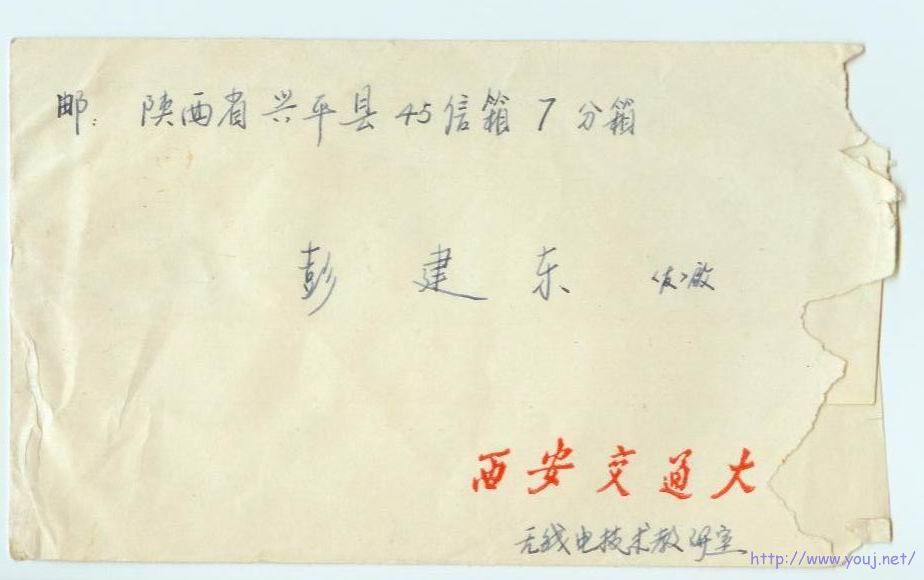 邮: 陕西省兴平县45信箱7分箱
彭建东 <友>啟
西安交通大
无线电技术教研室
http://www.youj.net/